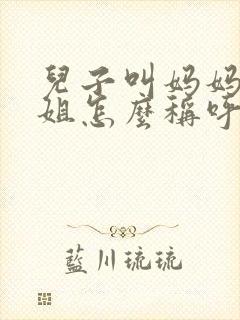 兒子叫妈妈
姐怎麼稱呼
藍川琉琉